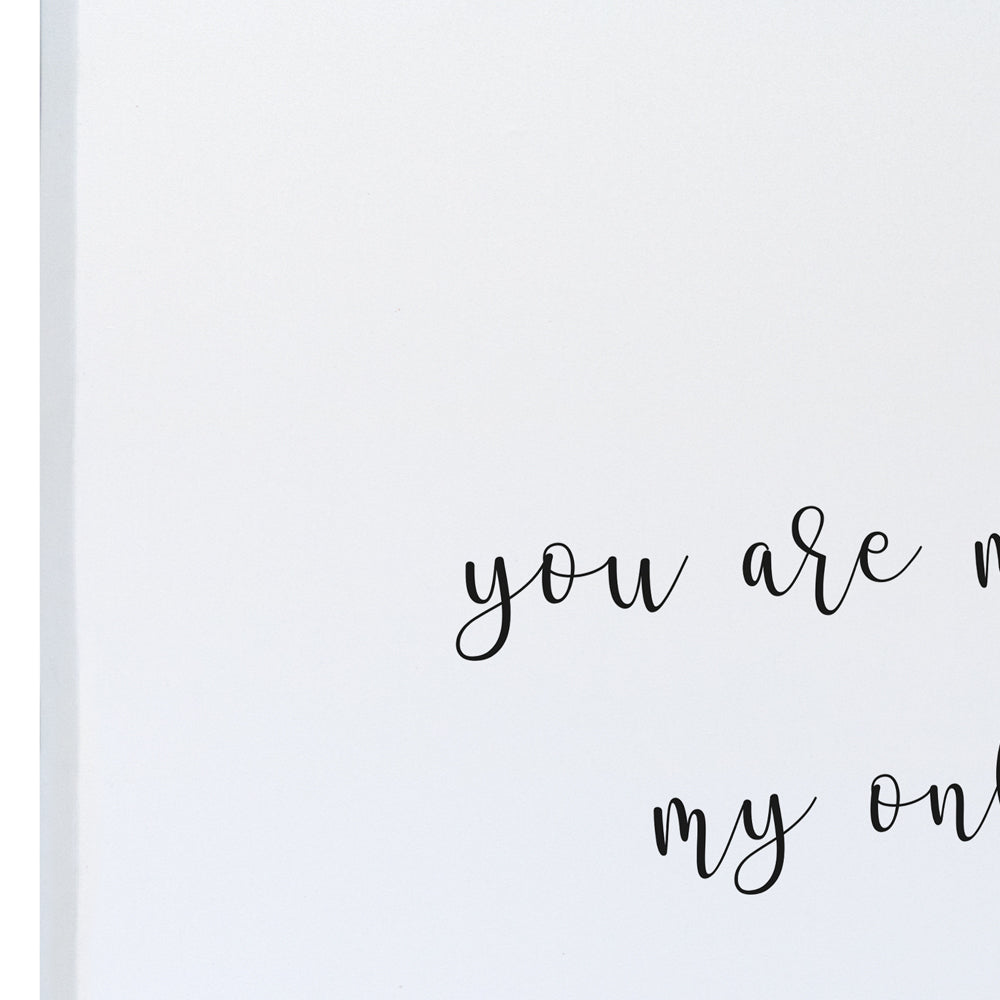 you are
my onl